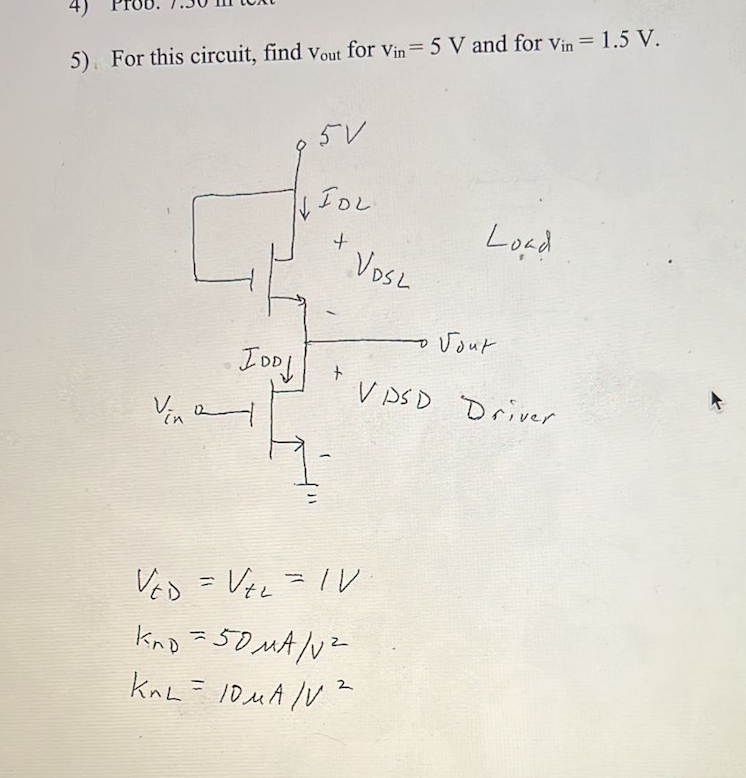 4) Prob. 7.30 in text
5). For this circuit, find vout for vin = 5 V and for vin = 1.5 V.
5V
IDL
+
Load
VDSL
-
vout
IDD
+
VDSD Driver
Vin
-
VtD = VtL = 1V
knD = 50 μA/V²
knL = 10 μA/V²